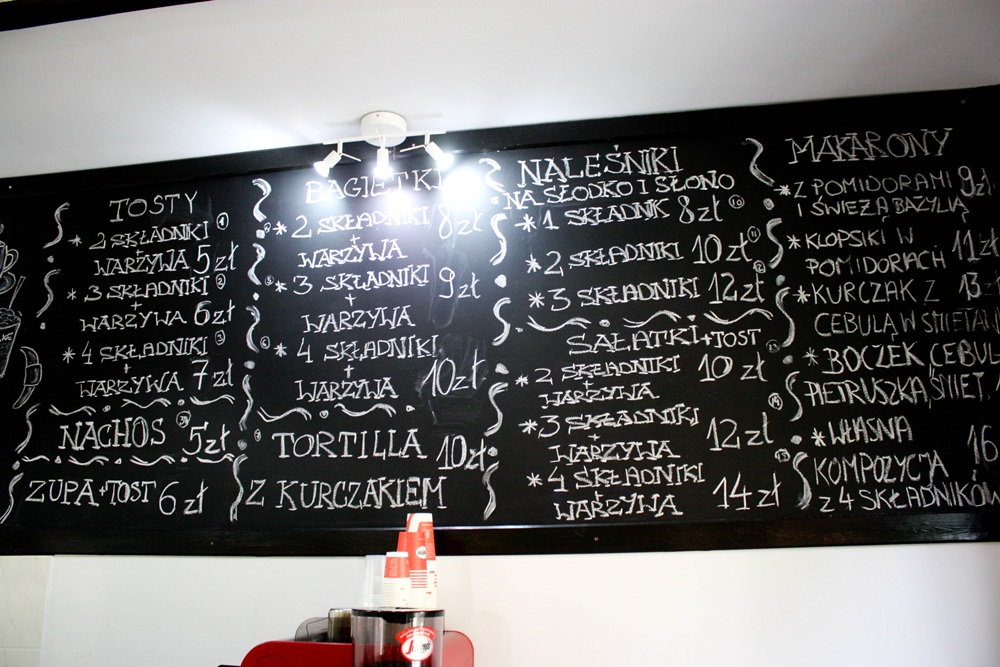 TOSTY
* 2 SKŁADNIKI 1
+
WARZYWA 5 zł
* 3 SKŁADNIKI 2
+
WARZYWA 6 zł
* 4 SKŁADNIKI 3
+
WARZYWA 7 zł
NACHOS 5 zł
ZUPA + TOST 6 zł
BAGIETKI
* 2 SKŁADNIKI 8 zł
+
WARZYWA
* 3 SKŁADNIKI 9 zł
+
WARZYWA
* 4 SKŁADNIKI
+
WARZYWA 10 zł
TORTILLA 10 zł
Z KURCZAKIEM
NALEŚNIKI
NA SŁODKO I SŁONO
* 1 SKŁADNIK 8 zł 10
* 2 SKŁADNIKI 10 zł 11
* 3 SKŁADNIKI 12 zł 12
SAŁATKI + TOST
* 2 SKŁADNIKI 10 zł
+
WARZYWA
* 3 SKŁADNIKI 12 zł
+
WARZYWA
* 4 SKŁADNIKI
+
WARZYWA 14 zł
MAKARONY
* Z POMIDORAMI 9 zł
I ŚWIEŻĄ BAZYLIĄ
* KLOPSIKI W 11 zł
POMIDORACH
* KURCZAK Z 13
CEBULĄ W ŚMIETAN
* BOCZEK, CEBUL
PIETRUSZKA, ŚMIET
* WŁASNA 16
KOMPOZYCJA
Z 4 SKŁADNIKÓW